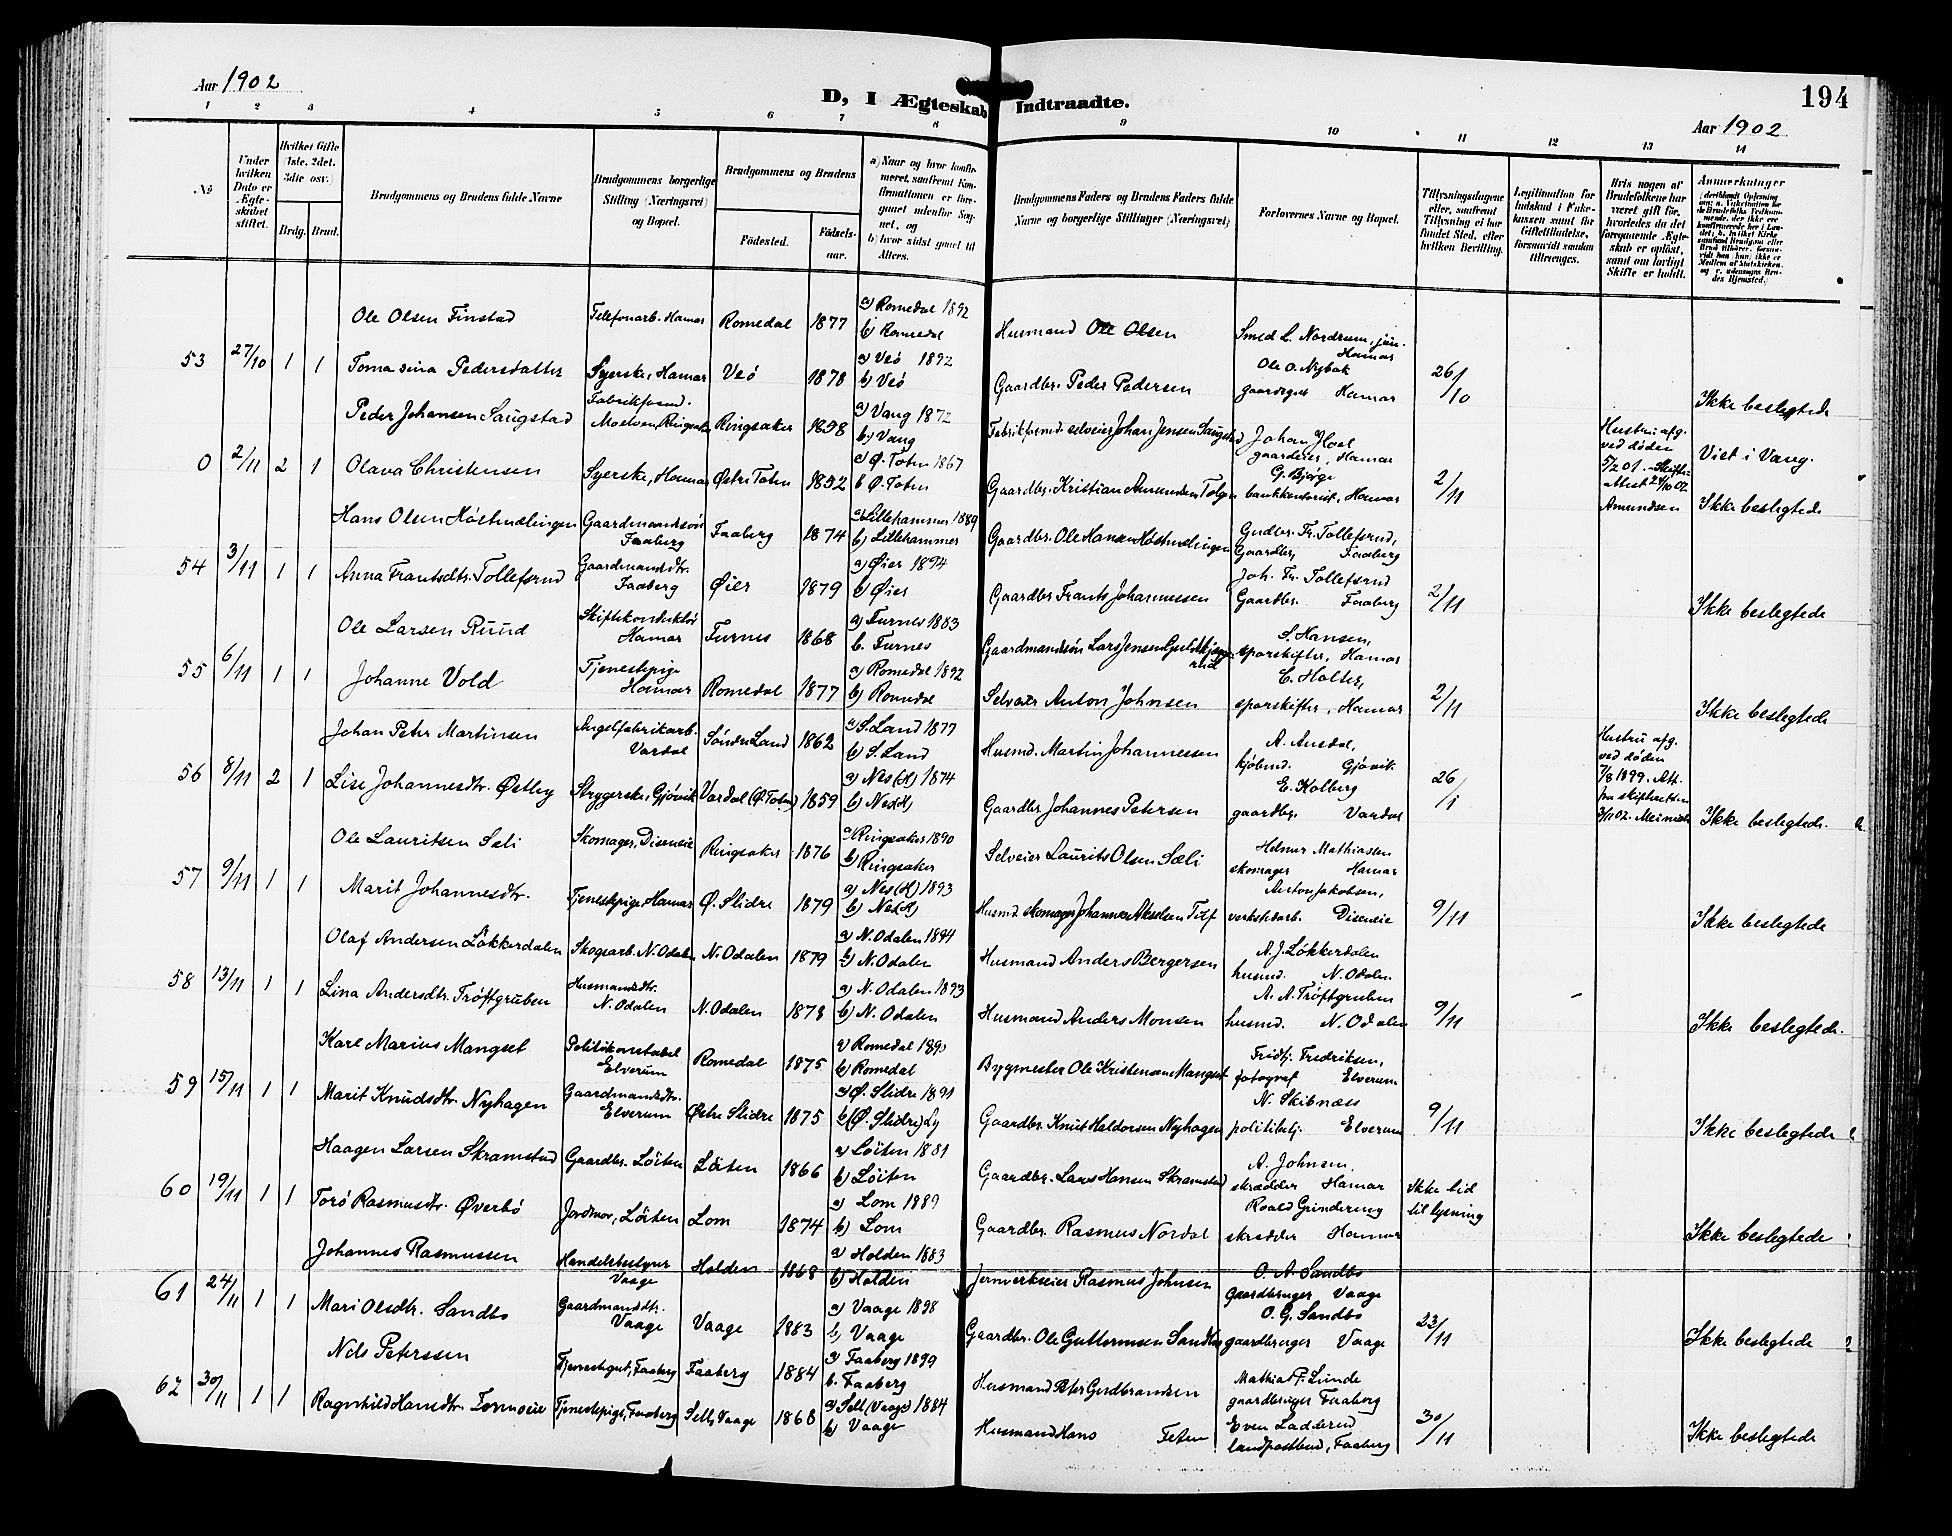 Aar 1902
D, I Ægteskab Indtraadte.
194
Aar 1902
1 2 3 4 5 6 7 8 9 10 11 12 13 14
No
Under hvilken Dato er Ægteskabet stiftet.
Hvilket Gifte (1ste, 2det, 3die osv.)
Brdg. Brud.
Brudgommens og Brudens fulde Navne
Brudgommens borgerlige Stilling (Næringsvei) og Bopæl.
Brudgommens og Brudens
Fødested.
Fødselsaar.
a) Naar og hvor konfirmeret, samt
b) hvor sidst gaaet til Alters.
Brudgommens Faders og Brudens Faders fulde Navne og borgerlige Stillinger (Næringsvei)
Forlovernes Navne og Bopæl.
Tillysningsdagene eller, saafremt Tillysning ei har fundet Sted, efter hvilken Bevilling.
Legitimation for Indskud i Enkekassen samt for Giftetilladelse, forsaavidt saadan tiltrænges.
Hvis nogen af Brudefolkene har været gift før, hvorledes da det foregaaende Ægteskab er opløst, samt om lovligt Skifte er holdt.
Anmærkninger
Ole Olsen Finstad Telefonarb. Hamar Romedal 1877 a) Romedal 1892 b) Romedal Husmand Ole Olsen Smed L. Nordrum, jun. Hamar
53 27/10 1 1 Tomasina Pedersdatter Syerske, Hamar Veö 1878 a) Veö 1892 b) Veö Gaardbr. Peder Pedersen Ole O. Nybak gaardsgut Hamar 26/10 Ikke beslegtede
Peder Johansen Saugstad Fabrikform. Moelven, Ringsaker Ringsaker 1858 a) Vang 1872 b) Vang Johan Jensen Saugstad Johan Hoel gaardeier, Hamar Hustru afg. ved døden 5/2 01. Viet i Vang.
0 2/11 2 1 Olava Christensen Syerske, Hamar Østre Toten 1852 a) Ø. Toten 1867 b Ø. Toten Gaardbr. Kristian Amundsen G. Bjørge bankkasserer, Hamar 2/11 Amundsen Ikke beslegtede
Hans Olsen Høstmælingen Gaardmandssøn Faaberg Faaberg 1874 a) Lillehammer 1889 b) Lillehammer Gaardbr. Ole Hansen Høstmælingen Gudbr. Fr. Tollefsrud, Gaardbr, Faaberg
54 3/11 1 1 Anna Frantsdtr. Tollefsrud Gaardmandsdtr. Faaberg Øier 1879 a) Øier 1894 b) Øier Gaardbr Frants Johannessen Joh. Fr. Tollefsrud Gaardbr. Faaberg 2/11 Ikke beslegtede
Ole Larsen Ruud Skiftekonduktør Hamar Furnes 1868 a) Furnes 1883 b. Furnes Gaardmandssøn Lars Jensen S. Hansen, sporskifter, Hamar
55 6/11 1 1 Johanne Vold Tjenestepige Hamar Romedal 1877 a) Romedal 1892 b) Romedal Selveier Anton Johnsen C. Holter, sporskifter, Hamar 2/11 Ikke beslegtede
Johan Peter Martinsen Angelfabrikarb. Vardal Søndre Land 1862 a) S. Land 1877 b) S. Land Husmd. Martin Johannessen A. Ausdal, kjøbmd. Gjøvik Hustru afg. ved døden 7/8 1899. Att. fra skifteretten
56 8/11 2 1 Lise Johannesdtr. Østby Strygerske, Gjøvik Vardal (Ø. Toten) 1859 a) Nes (H) 1874 b) Nes(H) Gaardbr. Johannes Petersen E. Kolberg gaardbr. Vardal 26/1 Ikke beslegtede.
Ole Lauritsen Sæli Skomager, Disenøie Ringsaker 1876 a) Ringsaker 1890 b) Ringsaker Selveier Laurits Olsen Sæli Helmer Mathiassen skomager Hamar
57 9/11 1 1 Marit Johannesdtr. Tjenestepige Hamar Ø. Slidre 1879 a) Nes (H) 1893 b) Nes(H) Husmd. skomager Johannes Akselsen Anton Jakobsen, verkstedarb. Disenøie 9/11 Ikke beslegtede
Olaf Andersen Løkkerdalen Skogsarb. N. Odalen N. Odalen 1879 a) N. Odalen 1894 b) N. Odalen Husmand Anders Bergersen A. J. Løkkerdalen husmd. N. Odalen
58 13/11 1 1 Lina Andersdtr. Trøftgruben Husmandsdtr. N. Odalen N. Odalen 1878 a) N. Odalen 1893 b) N. Odalen Husmand Anders Monsen A. A. Trøftgruben husmd. N. Odalen 9/11 Ikke beslegtede.
Karl Marius Mangset Politikonstabel Elverum Romedal 1875 a) Romedal 1890 b) Romedal Bygmester Ole Kristensen Mangset Fridtj. Fredriksen, fotograf Elverum
59 15/11 1 1 Marit Knudsdtr. Nyhagen Gaardmandsdtr. Elverum Østre Slidre 1875 a) Ø. Slidre 1891 b) (Ø. Slidre) Gaardbr. Knut Haldorsen Nyhagen N. Skibnæss politibetj. Elverum 9/11 Ikke beslegtede
Haagen Larsen Skramstad Gaardbr. Löiten Löiten 1866 a) Löiten 1881 b) Löiten Gaardbr. Lars Hansen Skramstad A. Johnsen, skrædder Hamar Ikke tid til lysning
60 19/11 1 1 Torö Rasmusdtr. Øverbö Jordmor, Löiten Lom 1874 a) Lom 1889 b) Lom Gaardbr. Rasmus Nordal Roald Grindereng skrædder Hamar Ikke beslegtede
Johannes Rasmussen Handelsbestyrer Vaage Holden 1868 a) Holden 1883 b) Holden Jernverkseier Rasmus Johnsen O. A. Sandbo gaardbruger Vaage
61 24/11 1 1 Mari Olsdtr. Sandbo Gaardmandsdtr. Vaage Vaage 1883 a) Vaage 1898 b) Vaage Gaardbr. Ole Guttormsen Sandbo O. G. Sandbo gaardbruger Vaage 23/11 Ikke beslegtede
Nils Peterssen Tjenestegut, Faaberg Faaberg 1884 a) Faaberg 1899 b. Faaberg Husmand Peter Gudbrandsen Mathias P. Lunde gaardbruger Faaberg
62 30/11 1 1 Ragnhild Hansdtr. Tjenestepige, Faaberg Sell, Vaage 1868 a) Sell (Vaage) 1884 b) Vaage Husmand Hans Even Ladderud landpostbud, Faaberg 30/11 Ikke beslegtede